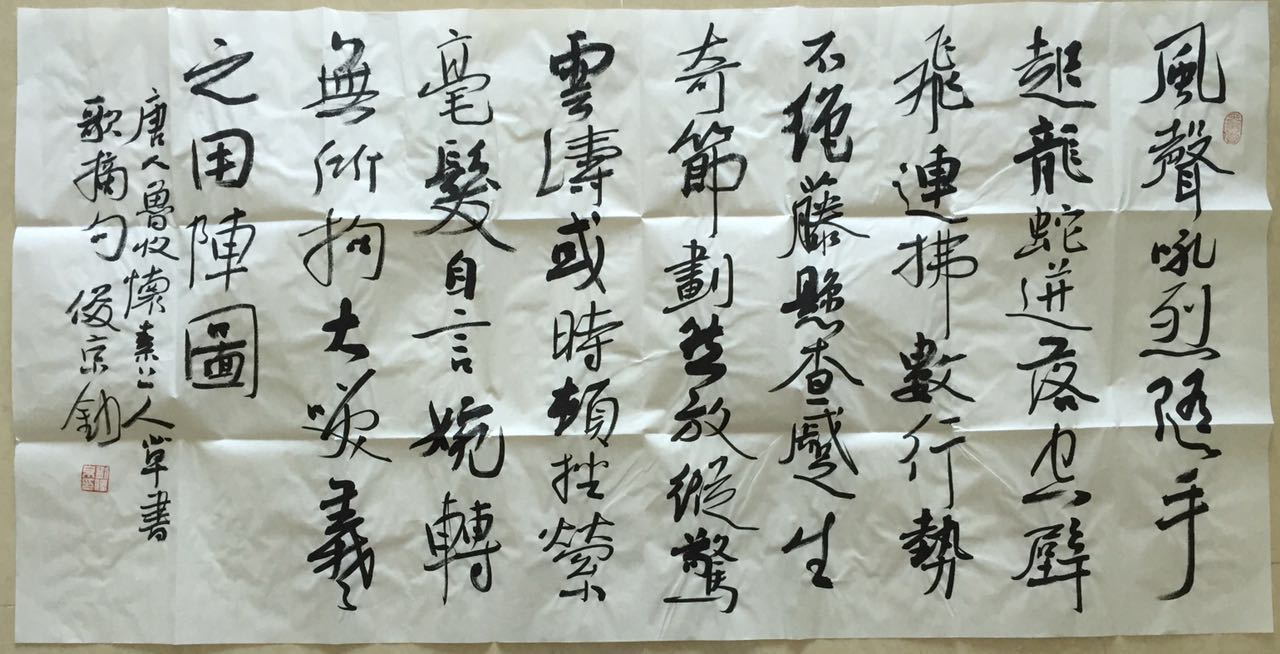 風聲吼烈隨手
起龍蛇迸落空壁
飛連拂數行勢
不絕藤懸查蹙生
奇節劃然放縱驚
雲濤或時頓挫縈
毫髮自言婉轉
無所拘大咲羲
之用陣圖
唐人魯收懷素上人草書
歌摘句 俊